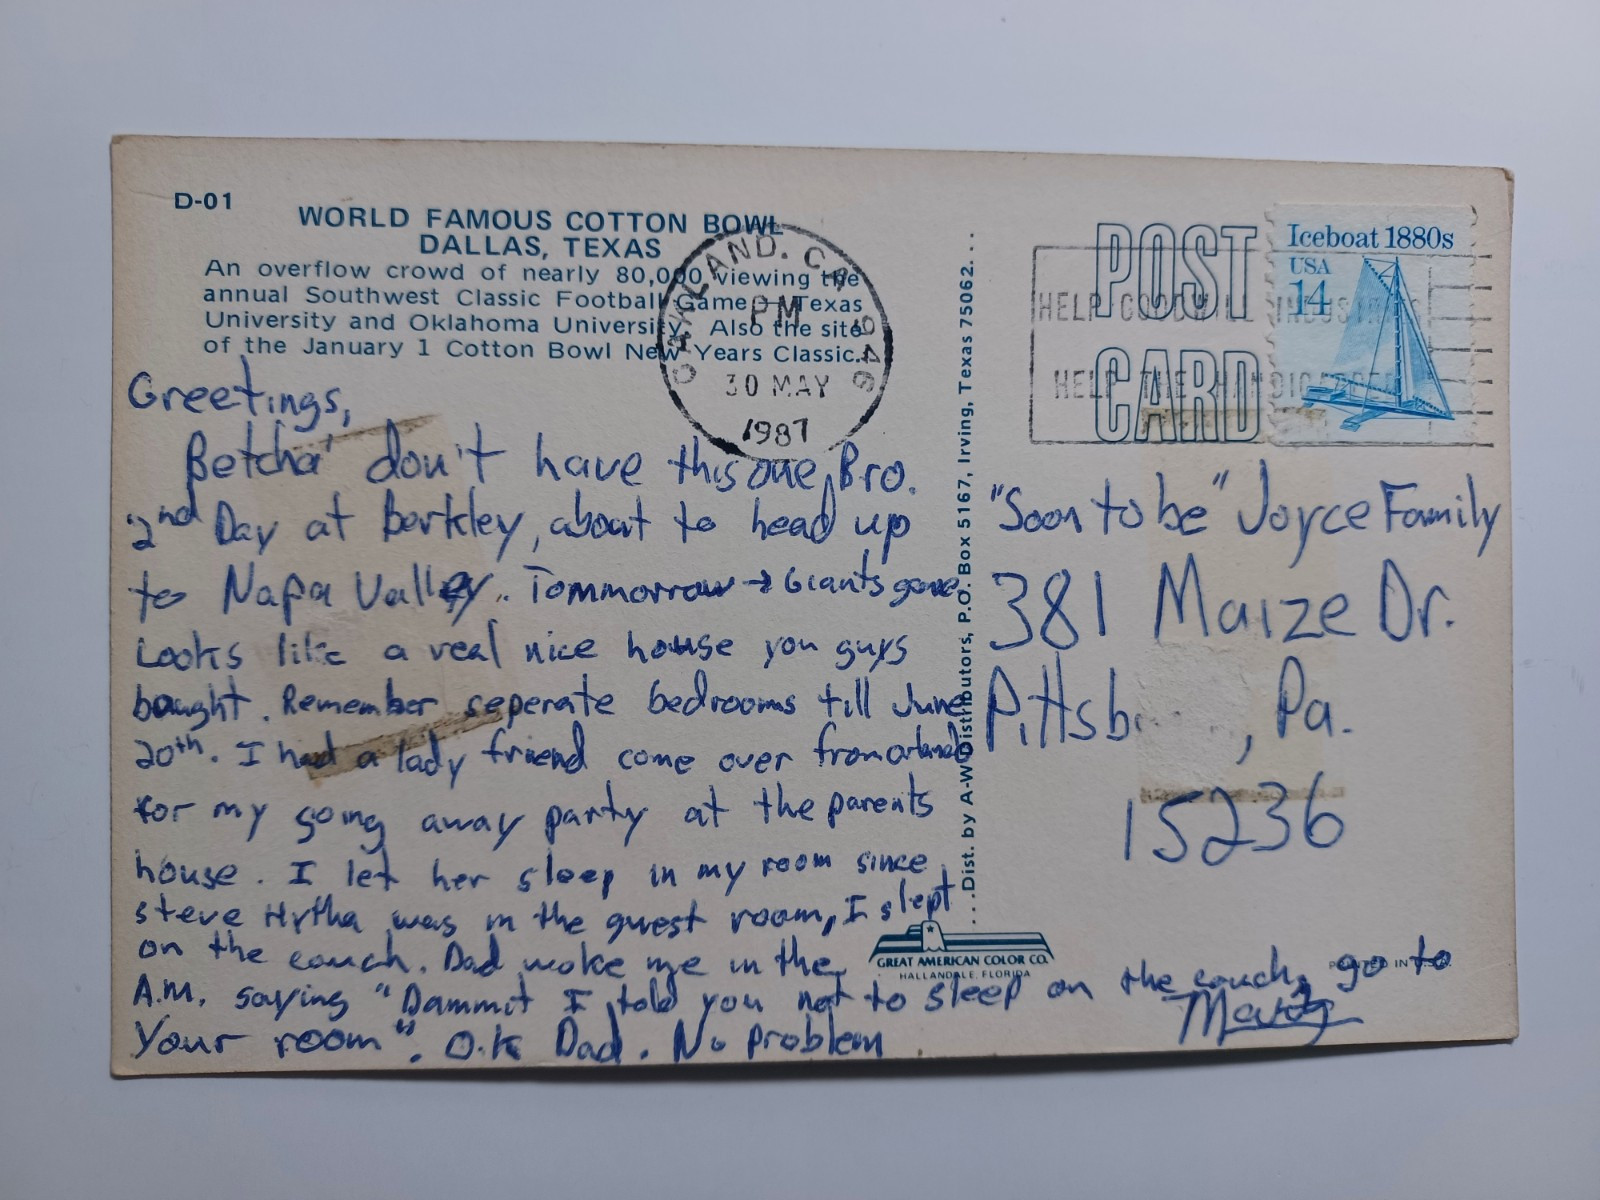 D-01
WORLD FAMOUS COTTON BOWL
DALLAS, TEXAS
An overflow crowd of nearly 80,000 viewing the
annual Southwest Classic Football Game Texas
University and Oklahoma University. Also the site
of the January 1 Cotton Bowl New Years Classic.
OAKLAND, CA 946
PM
30 MAY
1987
Greetings,
Betcha' don't have this one, Bro.
2nd Day at Berkley, about to head up
to Napa Valley. Tommorrow → Giants game
Looks like a real nice house you guys
bought. Remember seperate bedrooms till June
20th. I had a lady friend come over from orlando
for my going away party at the parents
house. I let her sleep in my room since
steve was in the guest room, I slept
on the couch. Dad woke me in the
A.M. saying "Dammit I told you not to sleep on the couch, go to
Your room". O.k Dad. No problem
Marty
...Dist. by A-W Distributors, P.O. Box 5167, Irving, Texas 75062...
POST
CARD
HELP GOODWILL INDUSTRIES
HELP THE HANDICAPPED
Iceboat 1880s
USA
14
"Soon to be" Joyce Family
381 Maize Dr.
Pittsb , Pa.
15236
GREAT AMERICAN COLOR CO.
HALLANDALE, FLORIDA
PRINTED IN U.S.A.